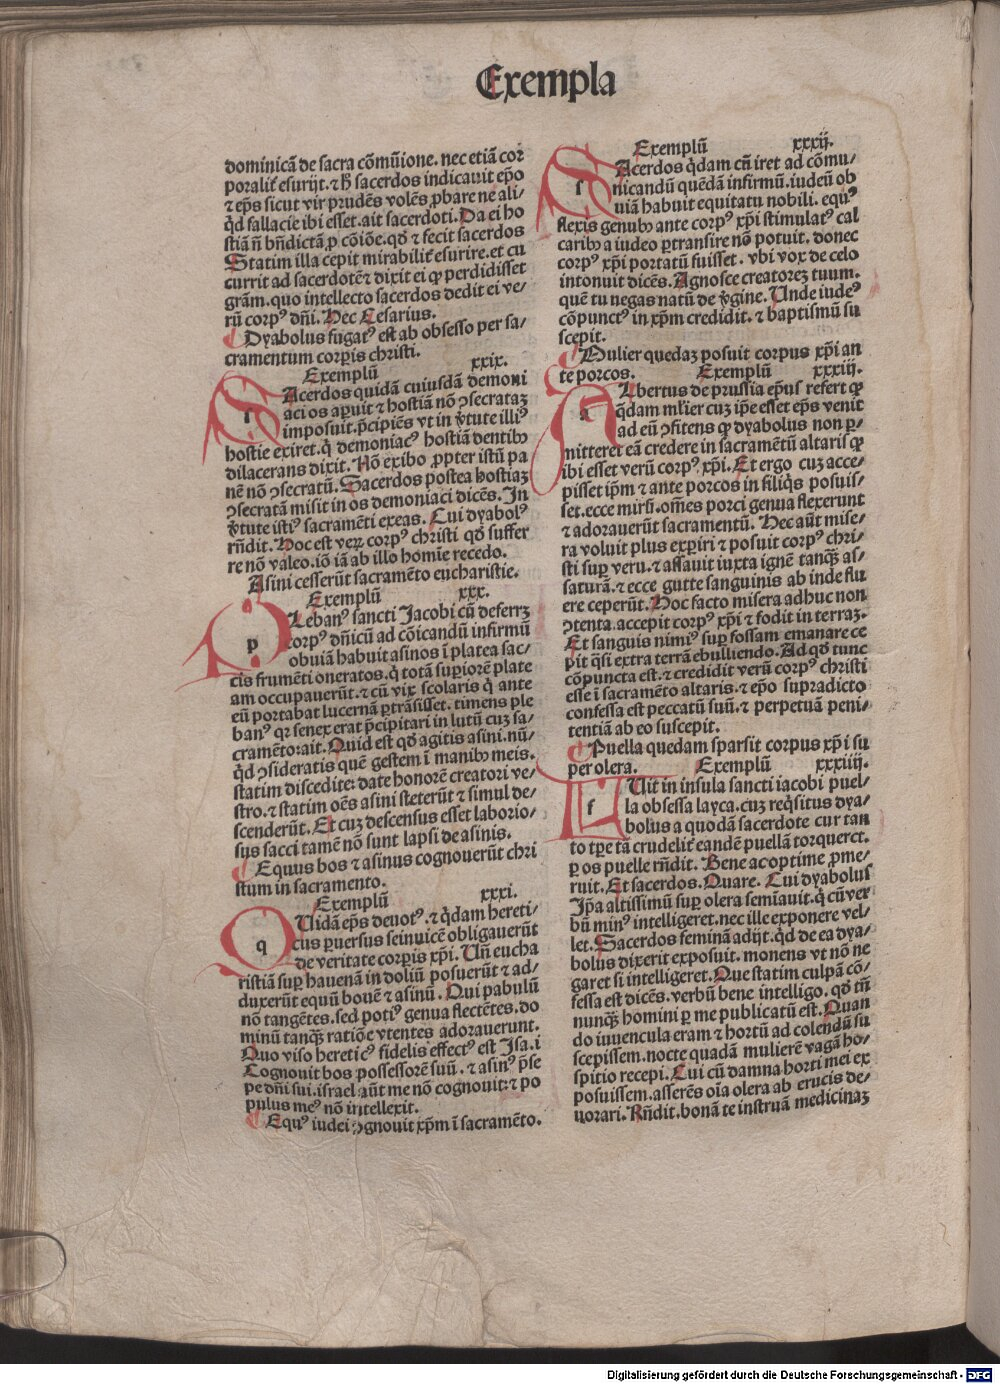 Exempla
dominicã de sacra cõmũione. nec etiã cor
poralit̃ esurijt. ⁊ hᷤ sacerdos indicauit ep̃o
⁊ ep̃s sicut vir prudẽs volẽs ꝓbare ne ali/
q̇d fallacie ibi esset. ait sacerdoti. Da ei ho
stiã ñ bñdictã ꝓ cõiõe. qd̛ ⁊ fecit sacerdos
Statim illa cepit mirabilit̃ esurire. et cu
currit ad sacerdotẽ ⁊ dixit ei ꝙ perdidisset
grãm. quo intellecto sacerdos dedit ei ve/
rũ corpꝰ dñi. Hec Cesarius.
Dyabolus fugatꝰ est ab obsesso per sa/
cramentum corꝑis christi.
Exemplũ xxix.
SAcerdos quidã cuiusdã demoni
aci os aꝑuit ⁊ hostiã nõ ꝯsecrataꝫ
imposuit. p̃cipiẽs vt in v̛tute illiꝰ
hostie exiret. q̇ demoniacꝰ hostiã dentibꝰ
dilacerans dixit. Nõ exibo ꝓpter istũ pa
nẽ nõ ꝯsecratũ. Sacerdos postea hostiaꝫ
ꝯsecratã misit in os demoniaci dicẽs. In
v̛tute istiꝰ sacramẽti exeas. Cui dyabolꝰ
rñdit. Hoc est verꝝ corpꝰ christi qd̛ suffer
re nõ valeo. iõ iã ab illo homie recedo.
Asini cesserũt sacramẽto eucharistie.
Exemplũ xxx.
PLebanꝰ sancti Jacobi cũ deferrꝫ
corpꝰ dñicũ ad cõicandũ infirmũ
obuiã habuit asinos ĩ platea sac/
cis frumẽti oneratos. q̇ totã suꝑiorẽ plate
am occupauerũt. ⁊ cũ vix scolaris q̇ ante
eũ portabat lucernã ꝑtrãsisset. timens ple
banꝰ qꝛ senex erat p̃cipitari in lutũ cuꝫ sa/
cramẽto: ait. Quid est qd̛ agitis asini. nũ/
q̇d ꝯsideratis quẽ gestem ĩ manibꝰ meis.
statim discedite: date honorẽ creatori ve/
stro. ⁊ statim oẽs asini steterũt ⁊ simul de/
scenderũt. Et cuꝫ descensus esset laborio/
sus sacci tamẽ nõ sunt lapsi de asinis.
Equus bos ⁊ asinus cognouerũt chri
stum in sacramento.
Exemplũ xxxi.
QUidã ep̃s deuotꝰ. ⁊ q̇dam hereti/
cus ꝑuersus seinuicẽ obligauerũt
de veritate corꝑis xp̃i. Uñ eucha
ristiã suꝑ hauenã in doliũ posuerũt ⁊ ad/
duxerũt equũ bouẽ ⁊ asinũ. Qui pabulũ
nõ tangẽtes. sed potiꝰ genua flectẽtes. do
minũ tanq̃ꝫ ratiõe vtentes adorauerunt.
Quo viso hereticꝰ fidelis effectꝰ est Jsa. i
Cognouit bos possessorẽ suũ. ⁊ asinꝰ p̃se
pe dñi sui. israel aũt me nõ cognouit: ⁊ po
pulus meꝰ nõ intellexit.
Equꝰ iudei ꝯgnouit xp̃m ĩ sacramẽto.
Exemplũ xxxij.
SAcerdos q̇dam cũ iret ad cõmu/
nicandũ quẽdã infirmũ. iudeũ ob
uiã habuit equitatu nobili. equꝰ
flexis genubꝰ ante corpꝰ xp̃i stimulatꝰ cal
caribꝰ a iudeo ꝑtransire nõ potuit. donec
corpꝰ xp̃i portatũ fuisset. vbi vox de celo
intonuit dicẽs. Agnosce creatoreꝫ tuum.
quẽ tu negas natũ de v̛gine. Unde iudeꝰ
cõpunctꝰ in xp̃m credidit. ⁊ baptismũ su
scepit.
Mulier quedaꝫ posuit corpus xp̃i an
te porcos. Exemplũ xxxiij.
ALbertus de prussia ep̃us refert ꝙ
q̇dam mlier cuꝫ ip̃e esset ep̃s venit
ad eũ ꝯfitens ꝙ dyabolus non ꝑ/
mitteret eã credere in sacramẽtũ altaris ꝙ
ibi esset verũ corpꝰ xp̃i. Et ergo cuꝫ acce/
pisset ip̃m ⁊ ante porcos in siliq̇s posuis/
set. ecce mirũ. om̃es porci genua flexerunt
⁊ adorauerũt sacramentũ. Hec aũt mise/
ra voluit plus exꝑiri ⁊ posuit corpꝰ chri/
sti suꝑ veru. ⁊ assauit iuxta ignẽ tanq̃ꝫ as/
saturã. ⁊ ecce gutte sanguinis ab inde flu
ere ceperũt. Hoc facto misera adhuc non
ꝯtenta. accepit corpꝰ xp̃i ⁊ fodit in terraꝫ.
Et sanguis nimiꝰ suꝑ fossam emanare ce
pit q̃si extra terrã ebulliendo. Ad qd̛ tunc
cõpuncta est. ⁊ credidit verũ corpꝰ christi
esse ĩ sacramẽto altaris. ⁊ ep̃o supradicto
confessa est peccatũ suũ. ⁊ perpetuã peni/
tentiã ab eo suscepit.
Puella quedam sparsit corpus xp̃i su
per olera. Exemplũ xxxiiij.
FUit in insula sancti iacobi puel/
la obsessa layca. cuꝫ req̇situs dya/
bolus a quodã sacerdote cur tan
to tp̃e tã crudelit̃ eandẽ puellã torqueret.
ꝑ os puelle rñdit. Bene ac optime ꝓme/
ruit. Et sacerdos. Quare. Cui dyabolus
Jp̃a altissimũ suꝑ olera semĩauit. q̇ cũ ver
bũ minꝰ intelligeret. nec ille exponere vel/
let. Sacerdos feminã adijt. q̇d de ea dya/
bolus dixerit exposuit. monens vt nõ ne
garet si intelligeret. Que statim culpã cõ/
fessa est dicẽs. verbũ bene intelligo. qd̛ tñ
nunq̃ꝫ homini ꝑ me publicatũ est. Quan
do iuuencula eram ⁊ hortũ ad colendũ su
scepissem. nocte quadã mulierẽ vagã ho/
spitio recepi. Cui cũ damna horti mei ex
posuissem. asserẽs oĩa olera ab erucis de/
uorari. Rñdit. bonã te instruã medicinaꝫ
Digitalisierung gefördert durch die Deutsche Forschungsgemeinschaft - DFG